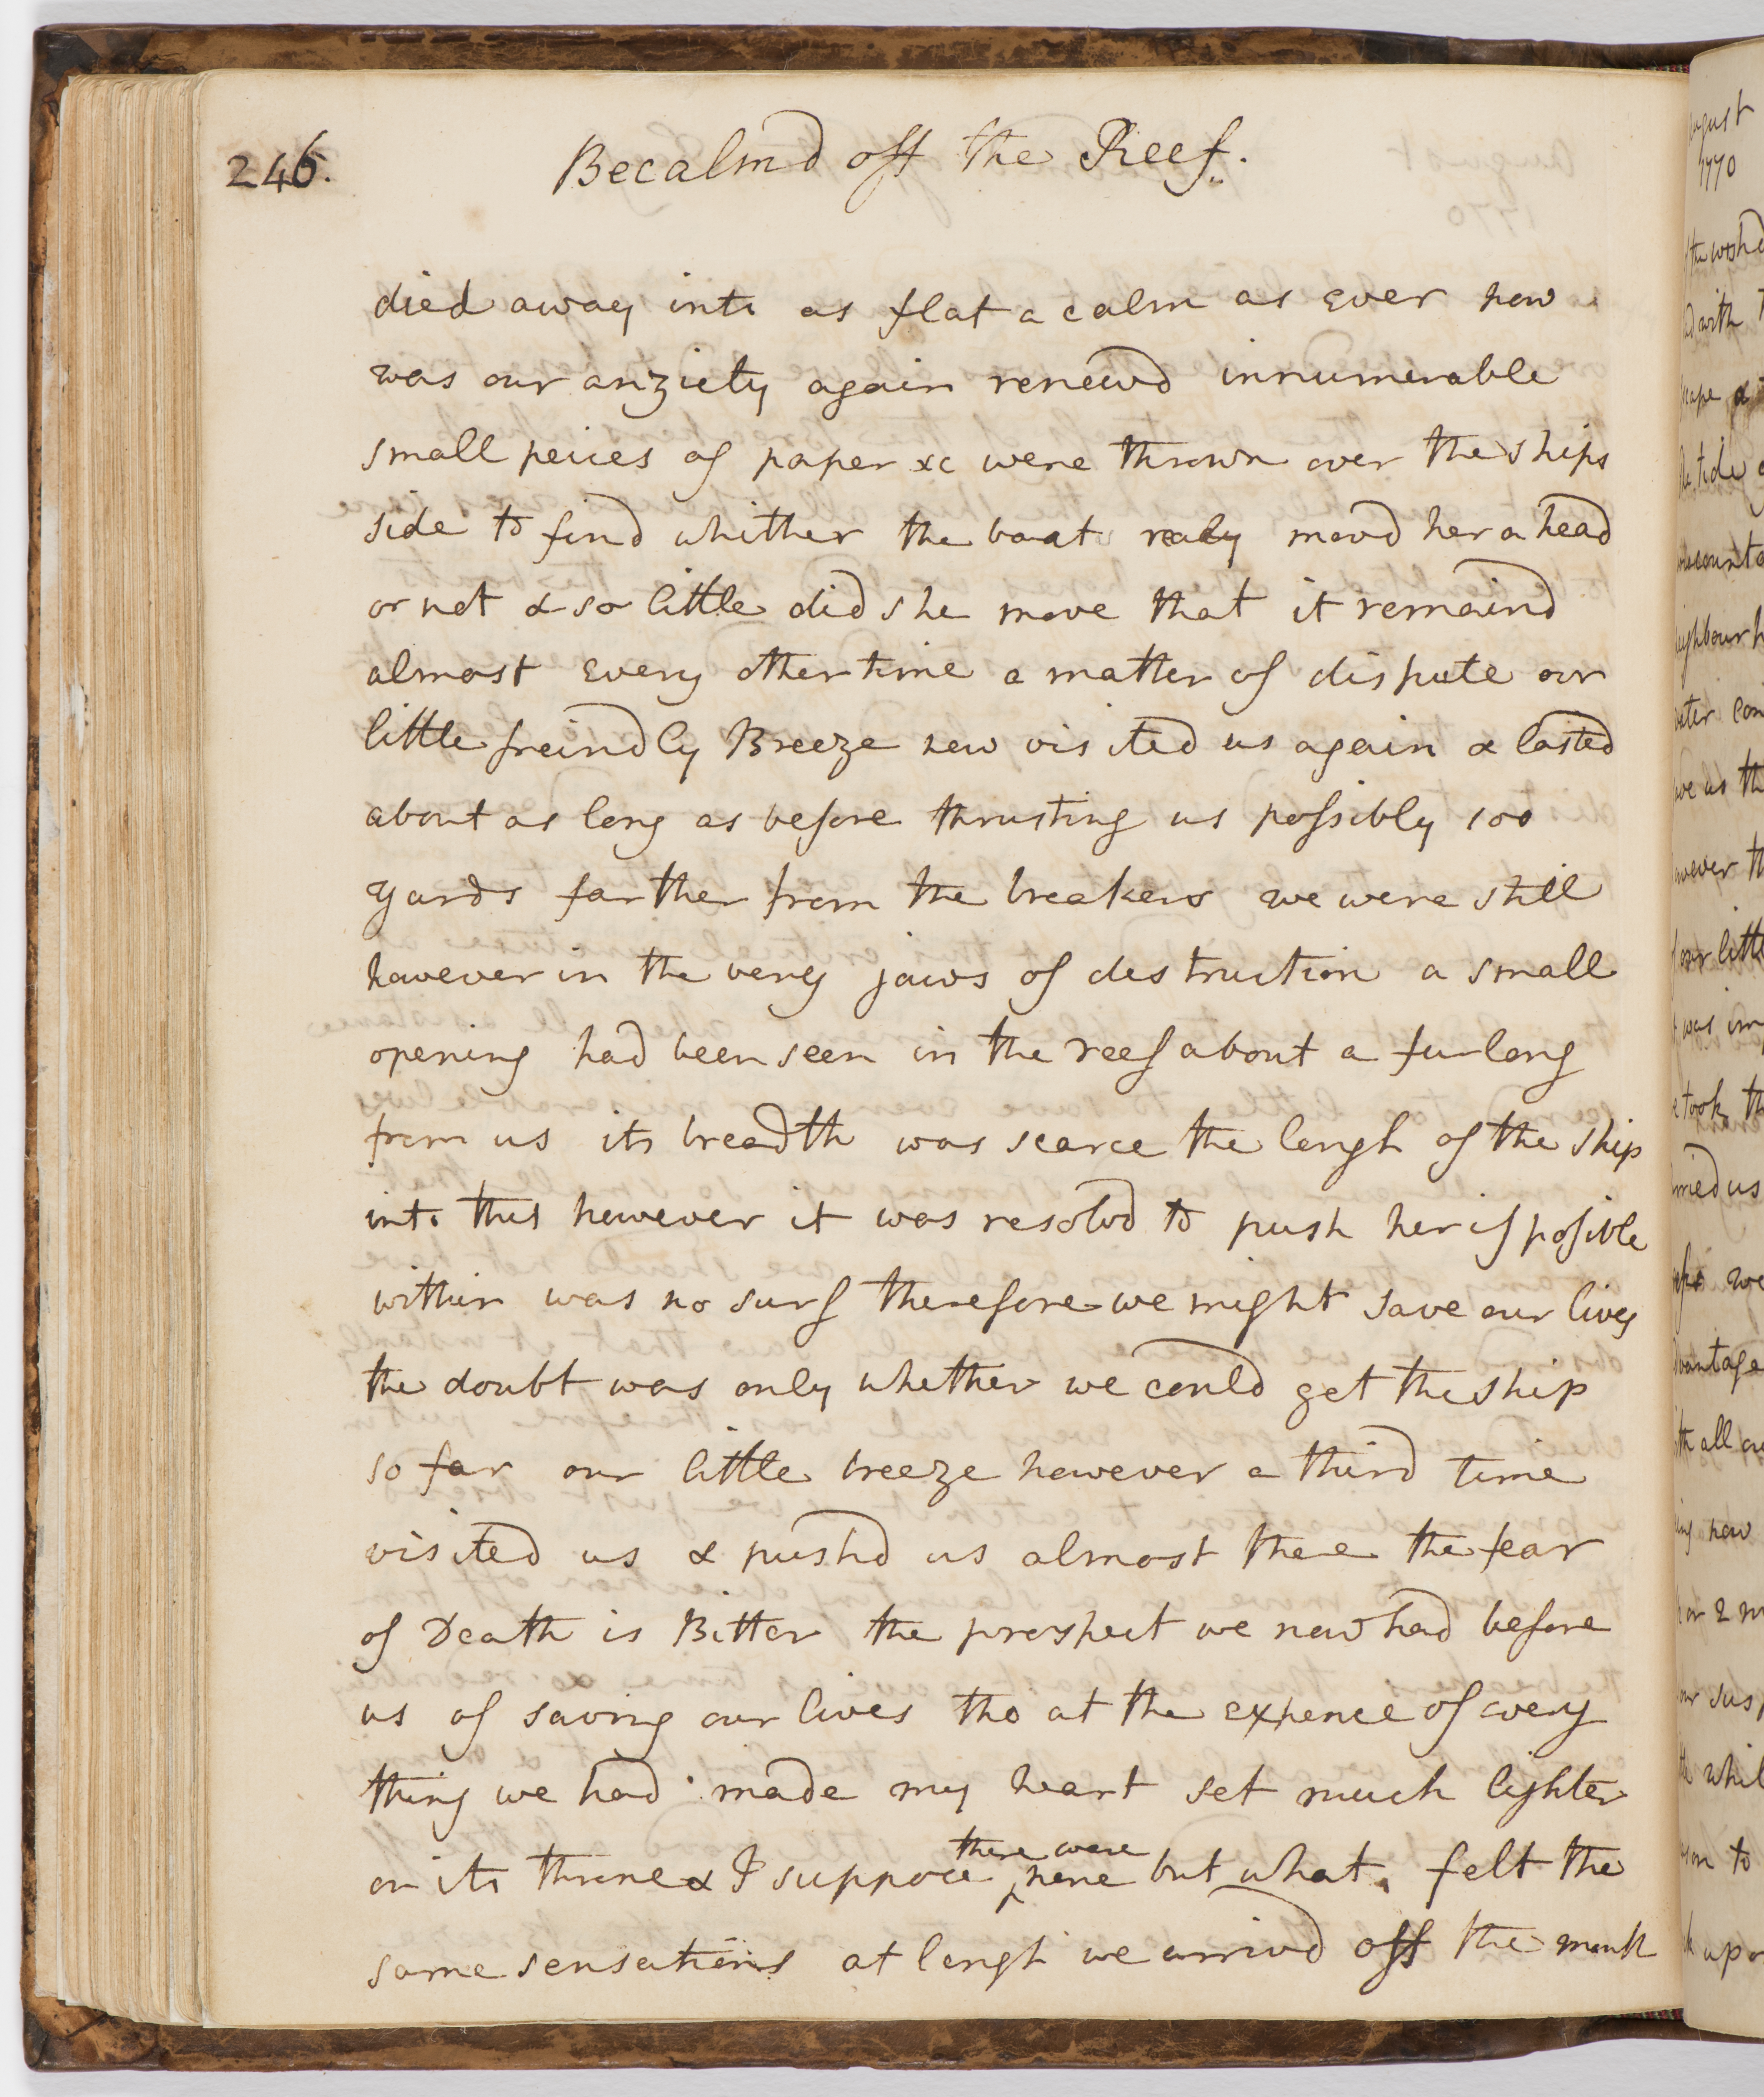 246.
Becalmd off the Reef.
died away into as flat a calm as ever now
was our anziety again renewd innumerable
small peices of paper &c were thrown over the ships
side to find whither the boat realy movd her a head
or not & so little did she move that it remaind
almost every other time a matter of dispute our
little freindly Breeze now visited us again & lasted
about as long as before thrusting us possibly 100
yards farther from the breakers we were still
however in the very jaws of destruction a small
opening had been seen in the reef about a furlong
from us its breadth was scarce the lengh of the ship
into this however it was resolvd to push her if posible
within was no surf therefore we might save our lives
the doubt was only whether we could get the ship
so far our little breeze however a third time
visited us & pushd us almost there the fear
of Death is Bitter the prospect we now had before
us of saving our lives tho at the expence of every
thing we had made my heart set much lighter
on its throne & I suppose there were none but what felt the
same sensations at lengh we arrivd off the mouth
August
1770
the wishd
with
tide
neighbourh
as th
our litt
was im
took th
us
we
vantage
all
now
or 2
whil
to
upo